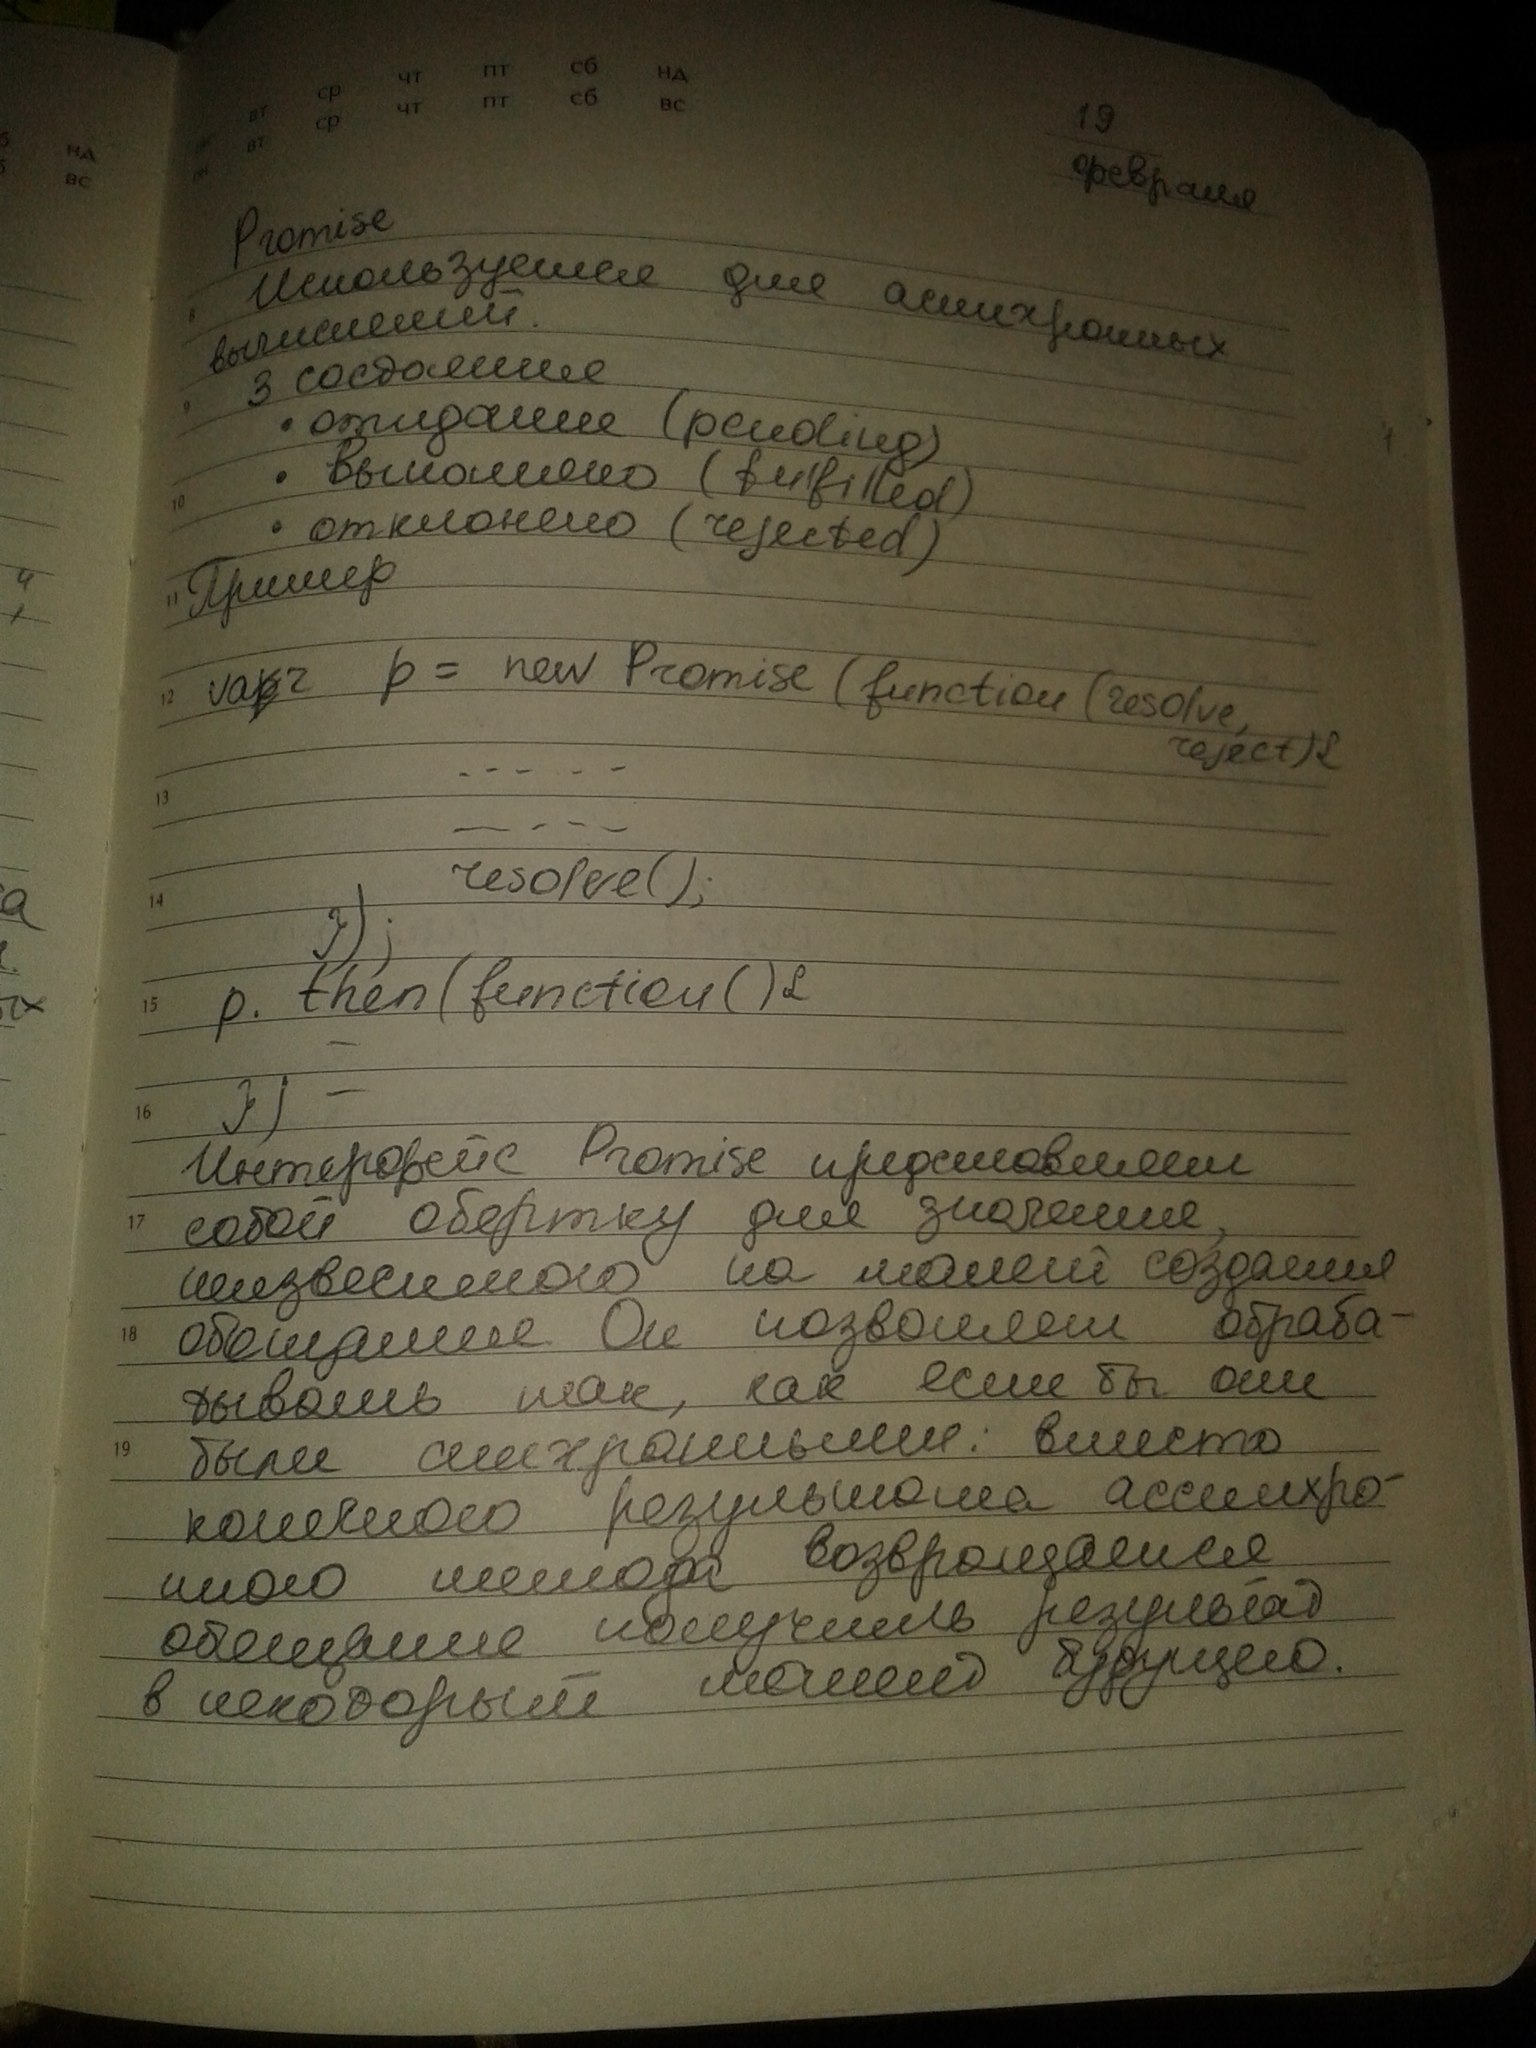 ср чт пт сб нд
вт ср чт пт сб вс
вт
нд
вс
19
февраля
Promise
8 Используется для асинхронных
вычислений.
9 3 состояния
• ожидание (pending)
10 • выполнено (fulfilled)
• отклонено (rejected)
11 Пример
12 var p = new Promise (function (resolve,
reject) {
13
resolve();
14 });
15 p. then(function () {
16 })
Интерфейс Promise представляет
17 собой обертку для значения,
неизвестного на момент создания
18 обещания. Он позволяет обраба-
тывать так, как если бы они
19 были синхронными: вместо
конечного результата ассинхро-
нного метода возвращается
обещание получить результат
в некоторый момент будущего.